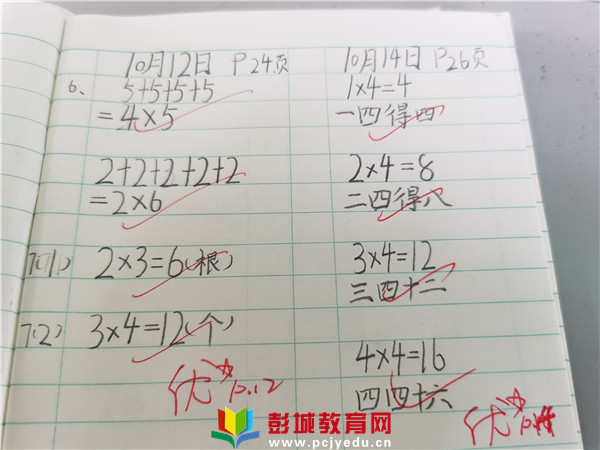 10月12日 P24页
6、
5+5+5+5
=4×5
2+2+2+2+2
=2×6
7(1) 2×3=6(根)
7(2) 3×4=12(个)
优 10.12
10月14日 P26页
1×4=4
一四得四
2×4=8
二四得八
3×4=12
三四十二
4×4=16
四四十六
优
彭城教育网
www.pcjyedu.cn